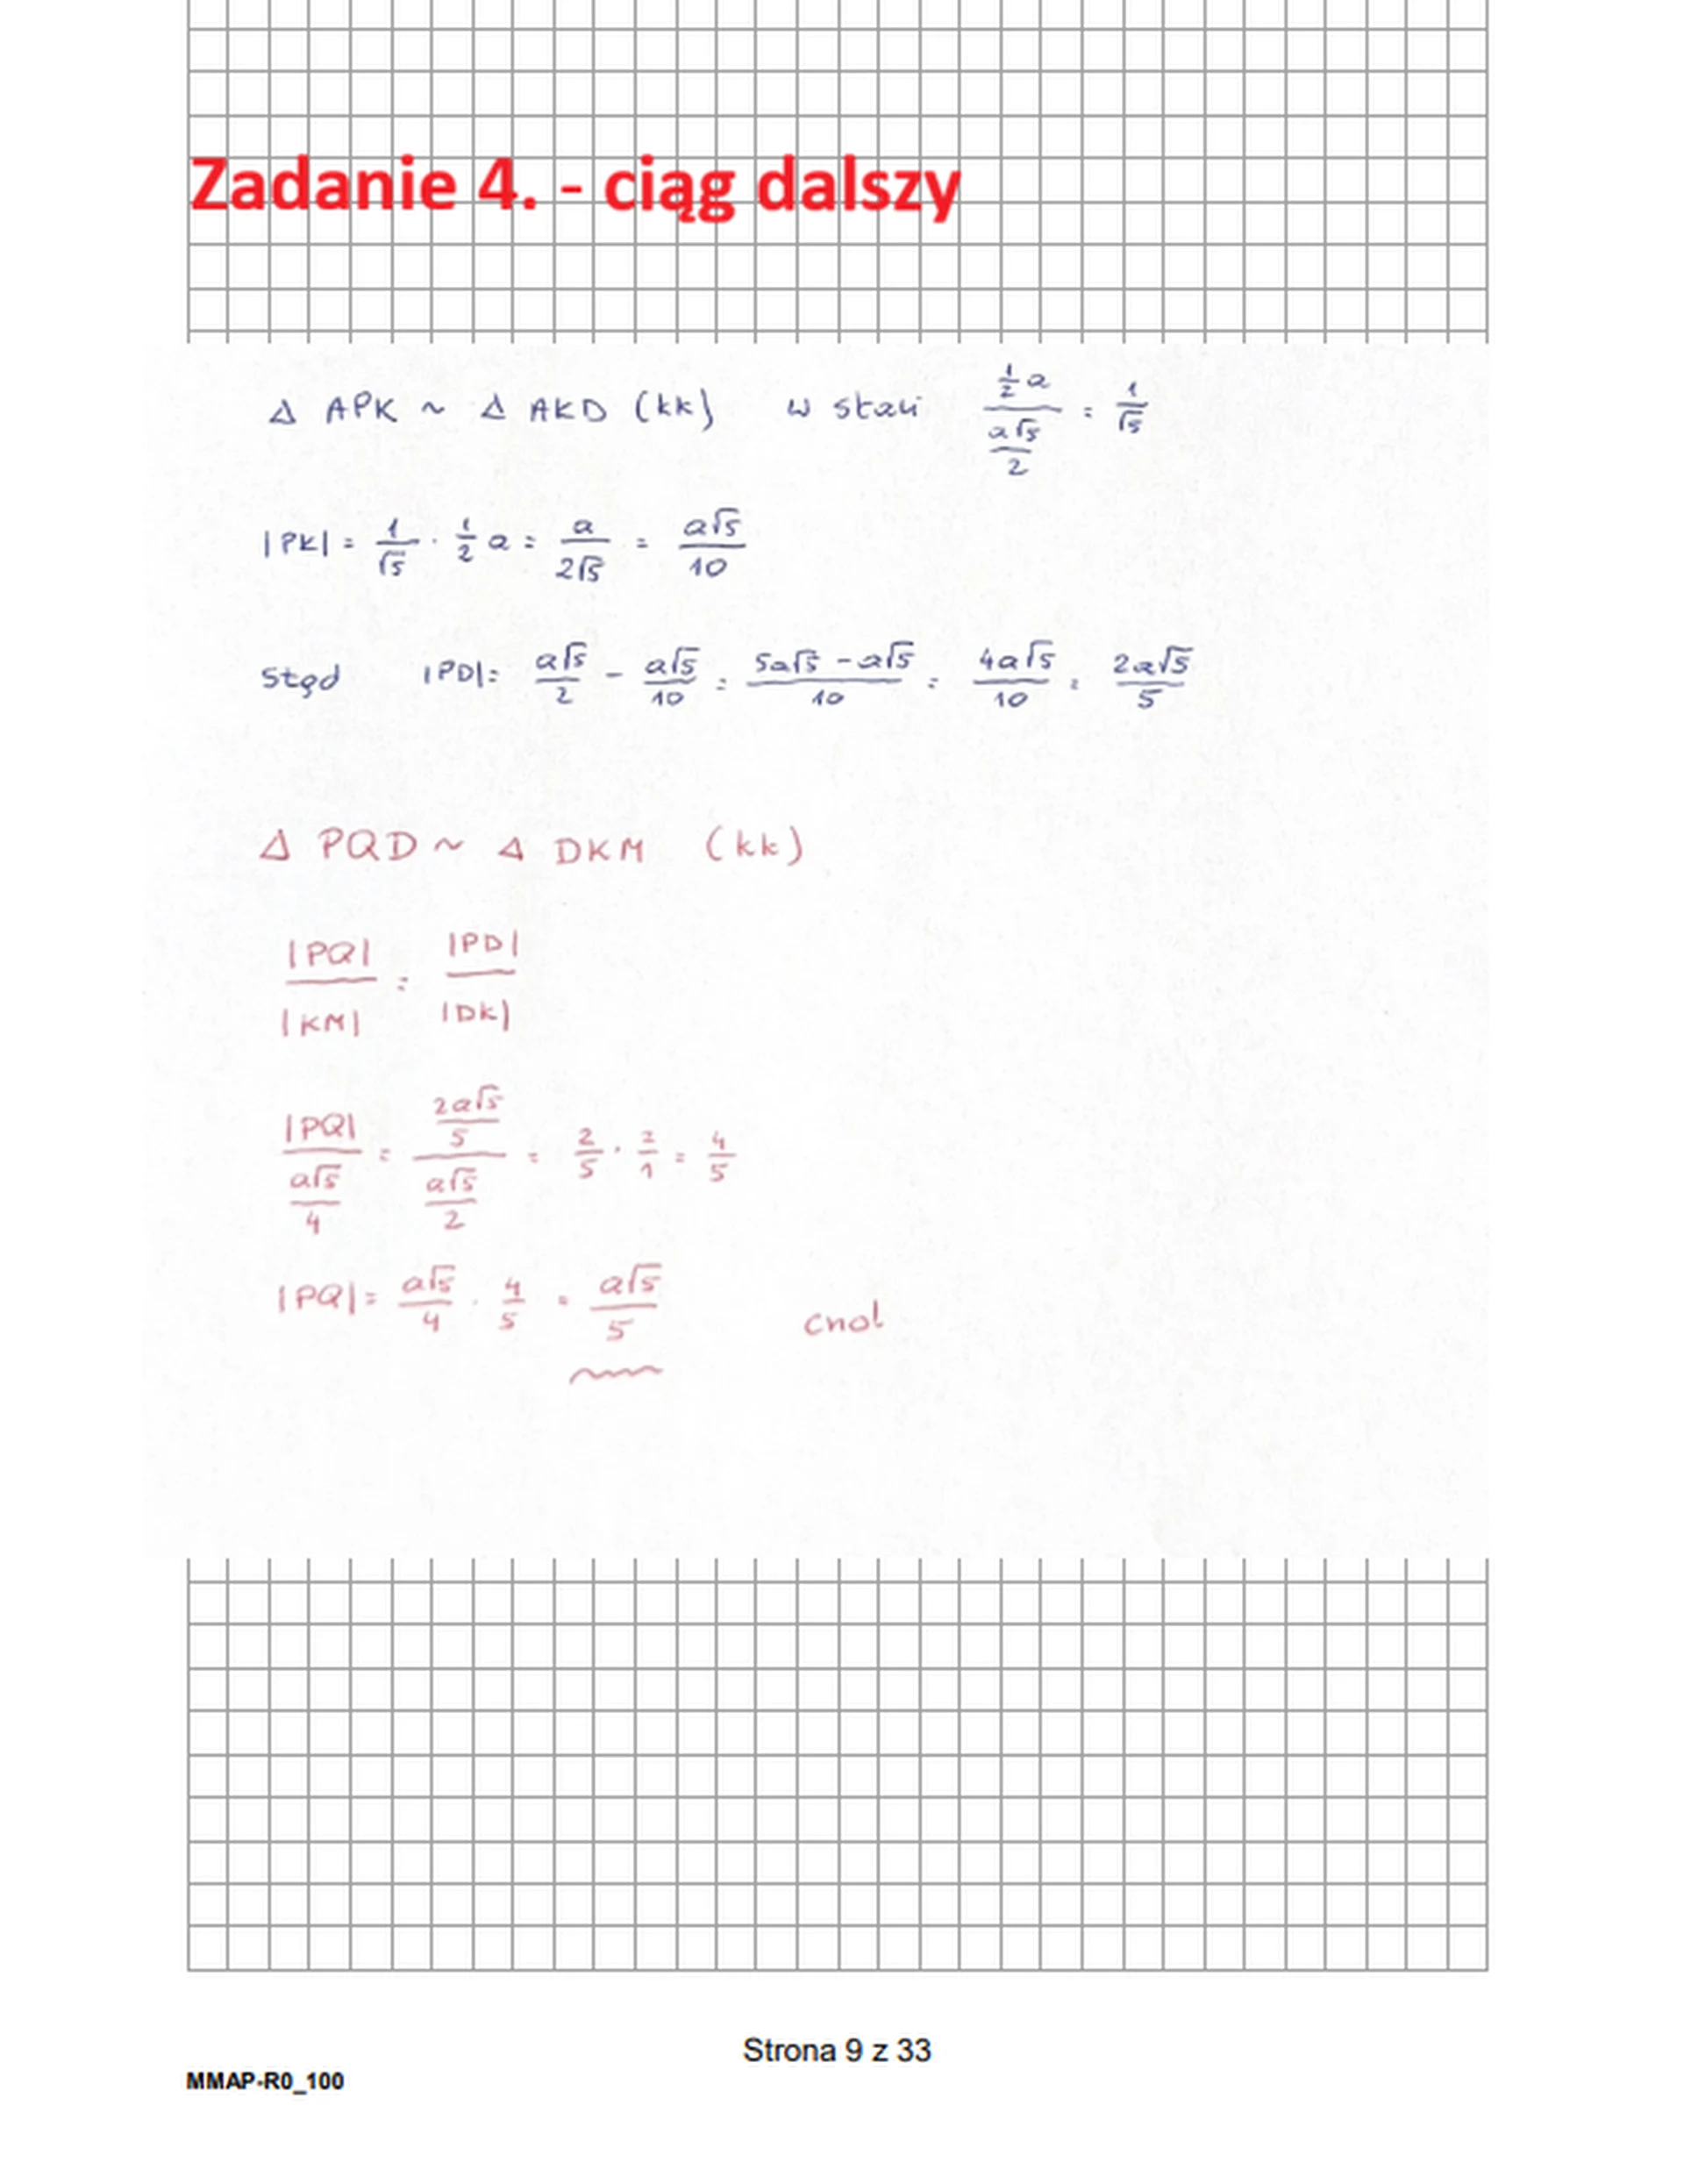 Zadanie 4. - ciąg dalszy
Δ APK ~ Δ AKD (kk) w skali (½a)/(a√5/2) = 1/√5
|PK| = 1/√5 · ½ a = a/(2√5) = a√5/10
Stąd |PD| = a√5/2 - a√5/10 = (5a√5 - a√5)/10 = 4a√5/10 = 2a√5/5
Δ PQD ~ Δ DKM (kk)
|PQ|/|KM| = |PD|/|DK|
|PQ|/(a√5/4) = (2a√5/5)/(a√5/2) = 2/5 · 2/1 = 4/5
|PQ| = a√5/4 · 4/5 = a√5/5 cnd
Strona 9 z 33
MMAP-R0_100